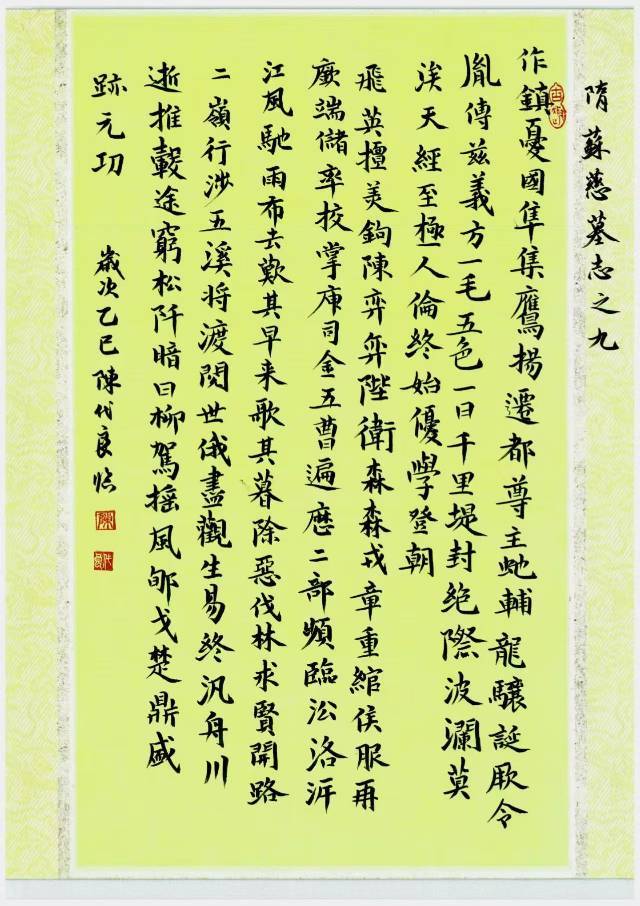 隋蘇慈墓志之九
作鎮憂國隼集鷹揚遷都尊主虵輔龍驤誕厥令
胤傳茲義方一毛五色一日千里堤封絕際波瀾莫
涘天經至極人倫終始優學登朝
飛英擅美鉤陳弈弈陛衛森森戎章重綰侯服再
廕端儲率校掌庫司金五曹遍歷二部頻臨公洛汧
江風馳雨布去歎其早来歌其暮除惡伐林求賢開路
二嶺行涉五溪将渡閱世俄盡觀生易終汎舟川
逝推轂途窮松阡暗日柳駕搖風郇戈楚鼎盛
跡元功
歲次乙巳陳代良临
陳